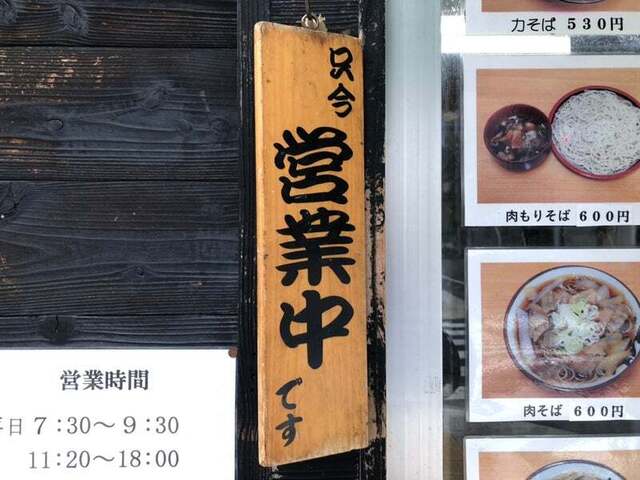 只今
営業中
です
営業時間
日 7:30〜9:30
11:20〜18:00
力そば 530円
肉もりそば 600円
肉そば 600円